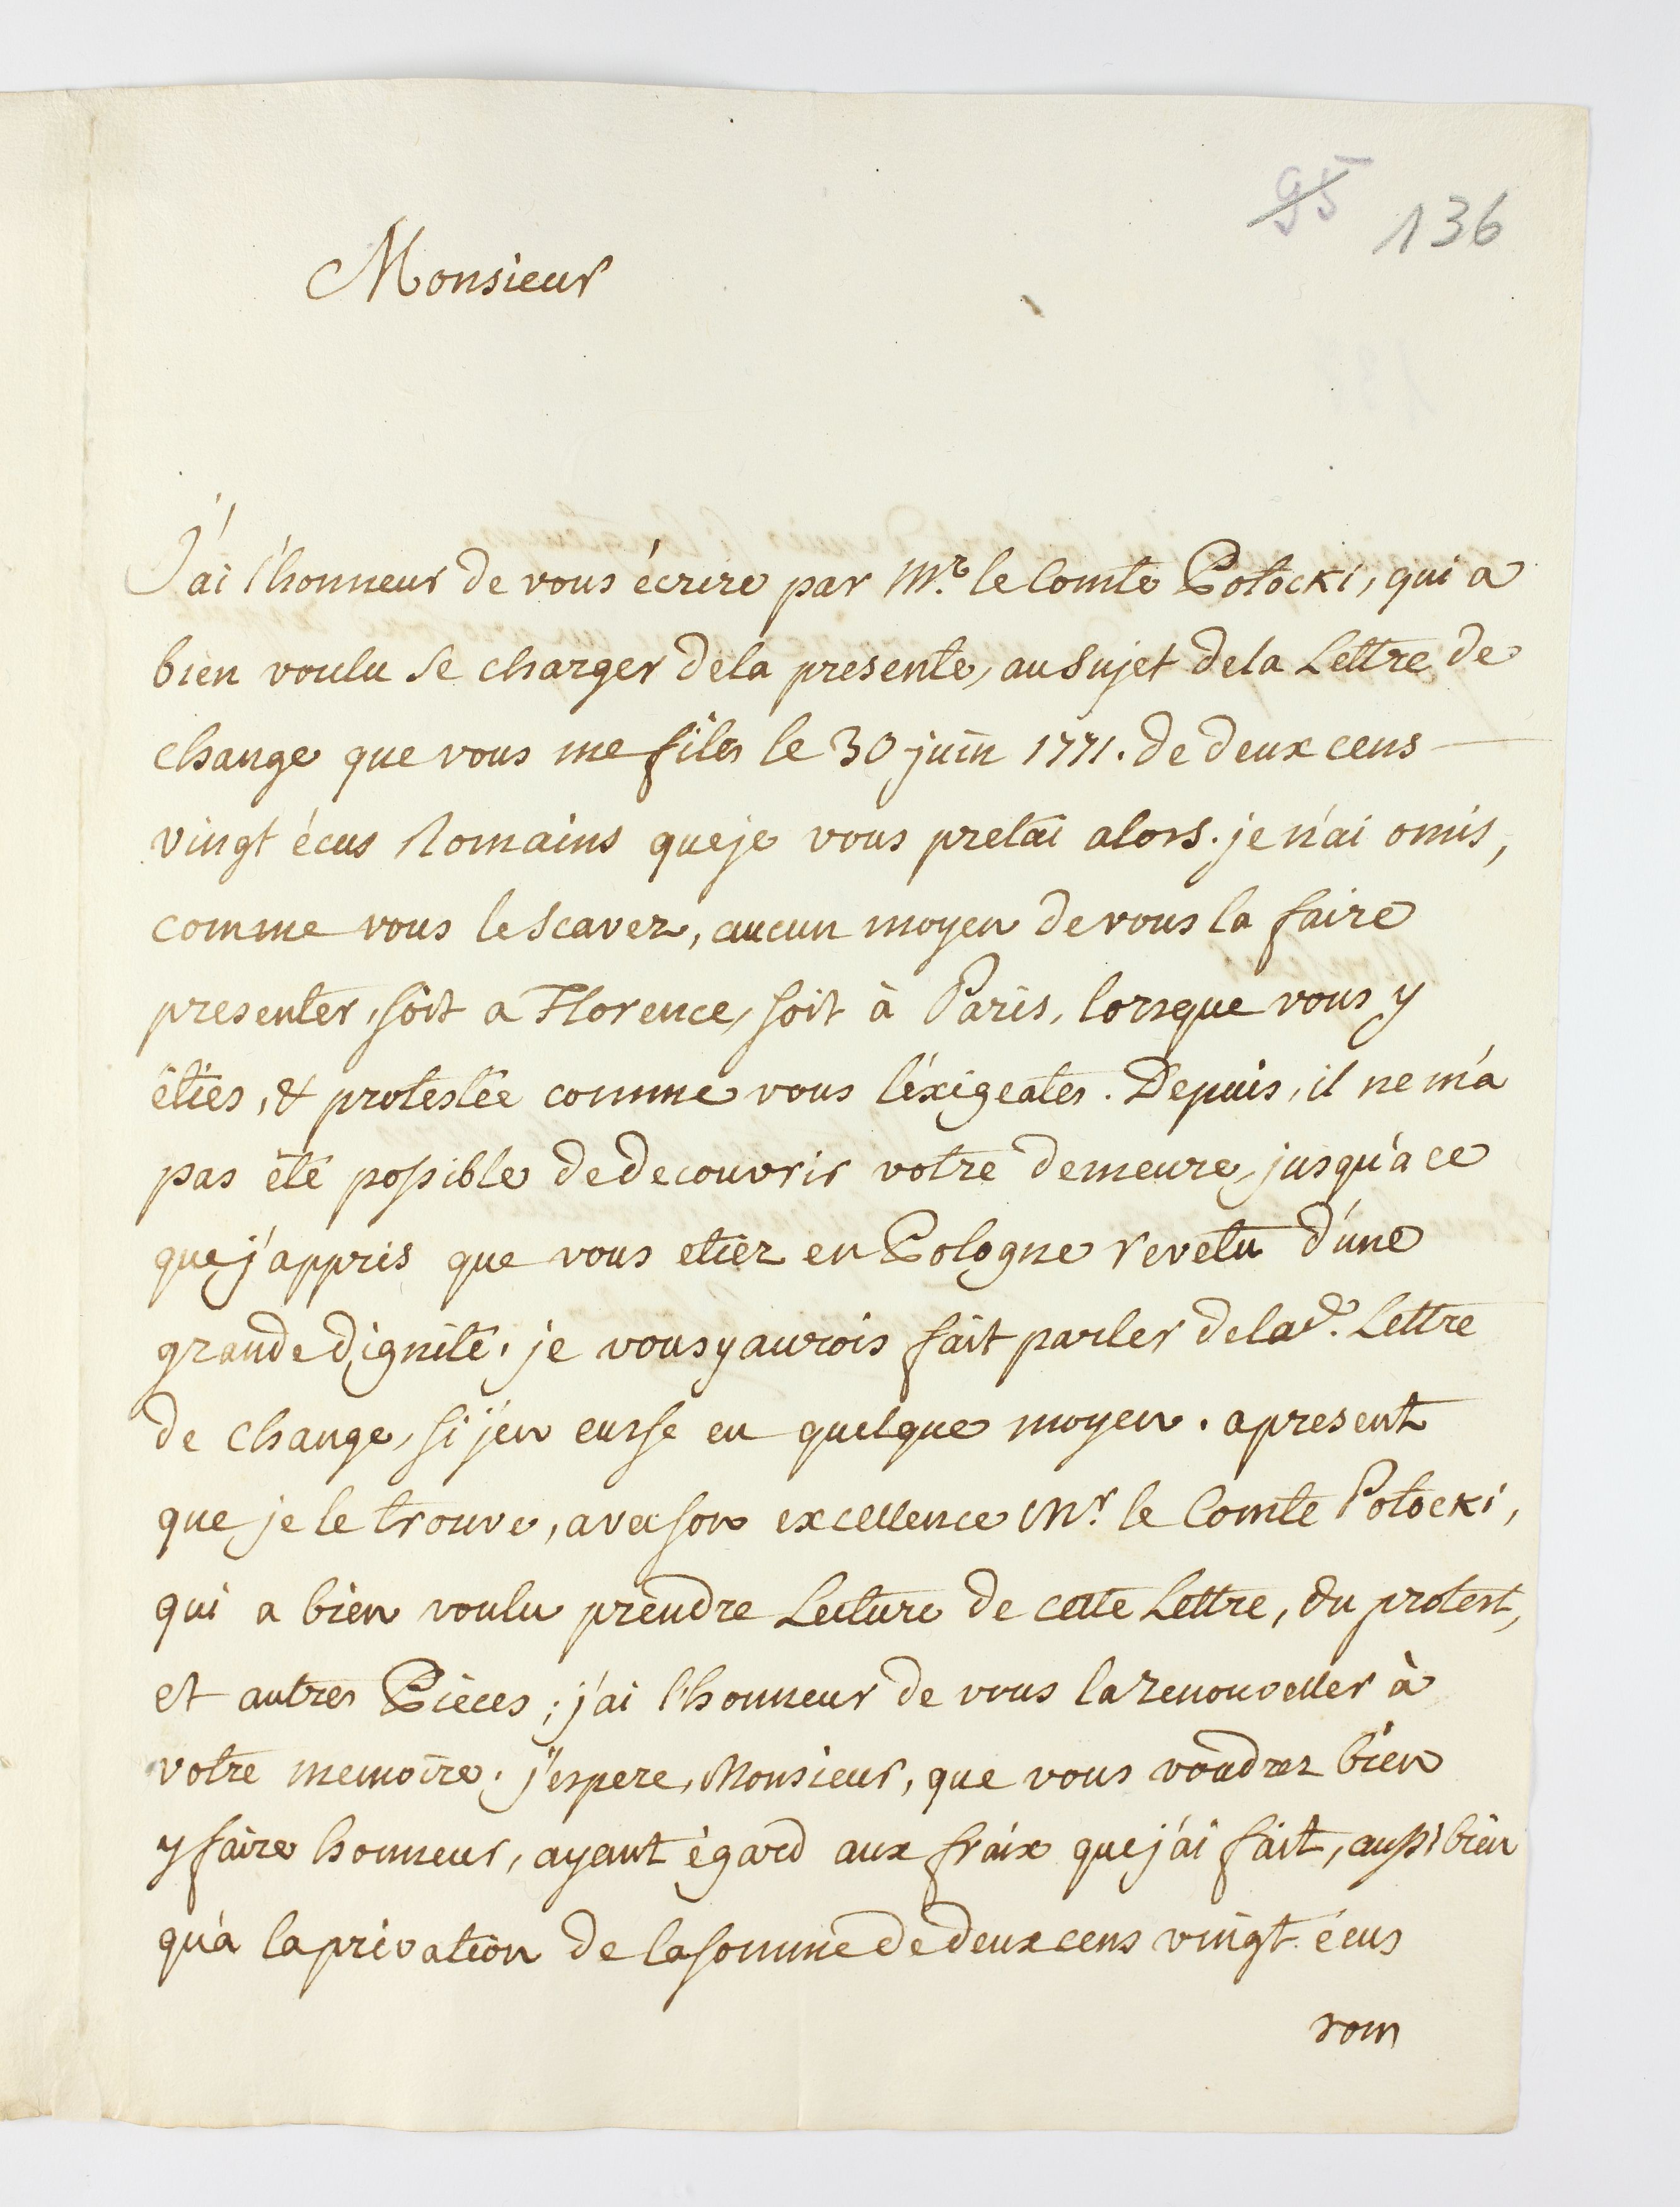 95 136
Monsieur
J'ai l'honneur de vous écrire par Mr. le Comte Potocki, qui a
bien voulu se charger dela presente, au sujet dela Lettre de
change que vous me fites le 30 juin 1771. de deux cens
vingt écus Romains que je vous pretai alors. je n'ai omis,
comme vous le scavez, aucun moyen de vous la faire
presenter, soit a Florence, soit à Paris, lorsque vous y
étiés, & protestée comme vous l'éxigeates. Depuis, il ne m'a
pas été possible de decouvrir votre demeure, jusqu'a ce
que j'appris que vous etiez en Pologne revetu d'une
grande dignité. je vous y aurois fait parler de lad. Lettre
de change, si j'en eusse eu quelque moyen. apresent
que je le trouve, avec son excellence Mr. le Comte Potocki,
qui a bien voulu prendre Lecture de cette Lettre, du protest,
et autres Pièces; j'ai l'honneur de vous la renouveller à
votre memoire. j'espere, Monsieur, que vous voudrez bien
y faire honneur, ayant égard aux fraix que j'ai fait, aussi bien
qu'a la privation de la somme de deux cens vingt écus
rom